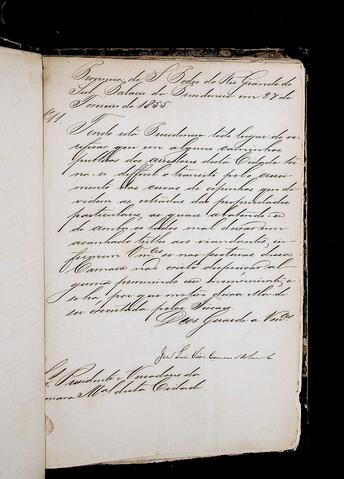 Provincia de S. Pedro do Rio Grande do
Sul, Palacio da Presidencia em 27 de
Fevereiro de 1855
Tendo esta Presidencia tido lugar de ve-
rificar que em alguns caminhos
publicos dos arredores desta Cidade tor-
na-se difficil o transito pelo cresci-
mento das cercas de espinhos que di-
videm as estradas das propriedades
particulares, as quaes
de ambos os lados mal deixão um
acanhado trilho aos viandantes, in-
formem Vmces se nas posturas dessa
Camara não existe disposição al-
guma prevenindo esse inconveniente, e
se ha, por que motivo deixa ella de
ser executada pelos Fiscaes
Deos Guarde a Vmces
Srs. Presidente e Vereadores da
Camara Mal desta Cidade